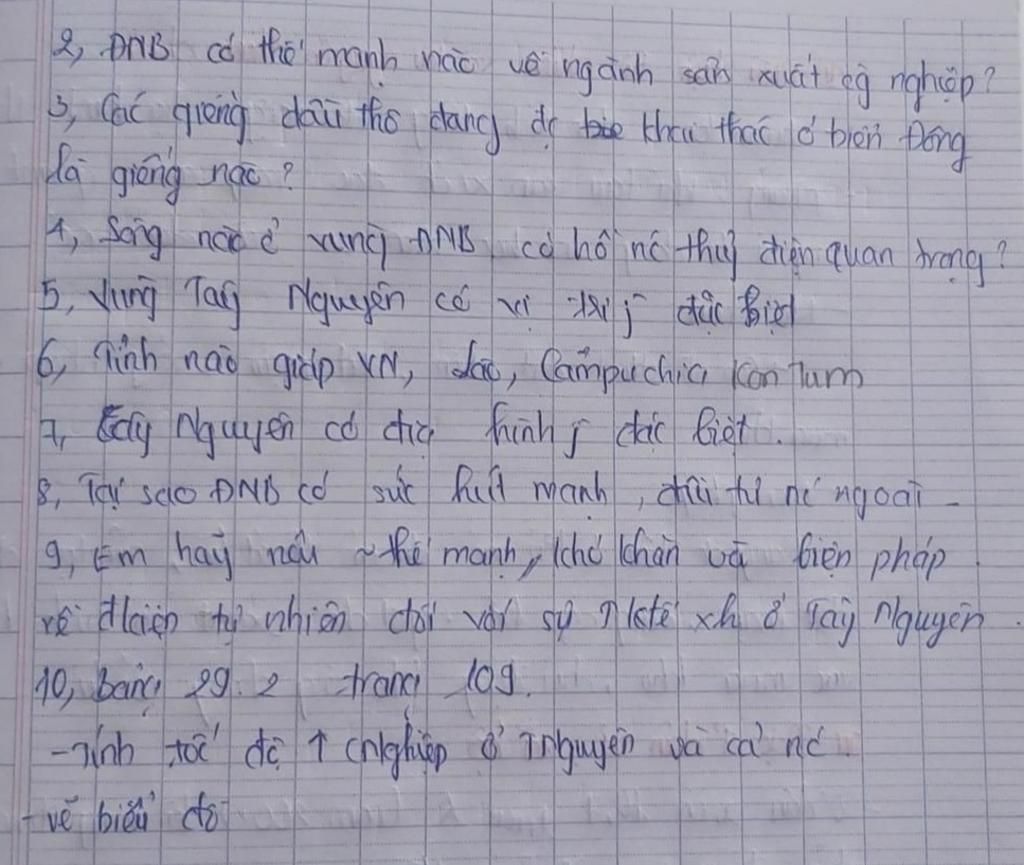 2, ĐNB có thế mạnh nào về ngành sản xuất cg nghiệp?
3, Các giếng dầu thô đang đc khai thác ở biển Đông
là giếng nào?
4, Sông nào ở vùng ĐNB có hồ nc thuỷ điện quan trọng?
5, Vùng Tây Nguyên có vị trí j đặc biệt
6, Tỉnh nào giáp VN, Lào, Cămpuchia Kon Tum
7, Tây Nguyên có địa hình j đặc biệt.
8, Tại sao ĐNB có sức hút mạnh, đầu tư nc ngoài
9, Em hãy nêu ~ thế mạnh, khó khăn và biện pháp
về đkiện tự nhiên đối với sự ↑ ktế xh ở Tây Nguyên.
10, Bảng 29.2 trang 109.
- Tính tốc độ ↑ cnghiệp ở Tnguyên và cả nc.
- vẽ biểu đồ